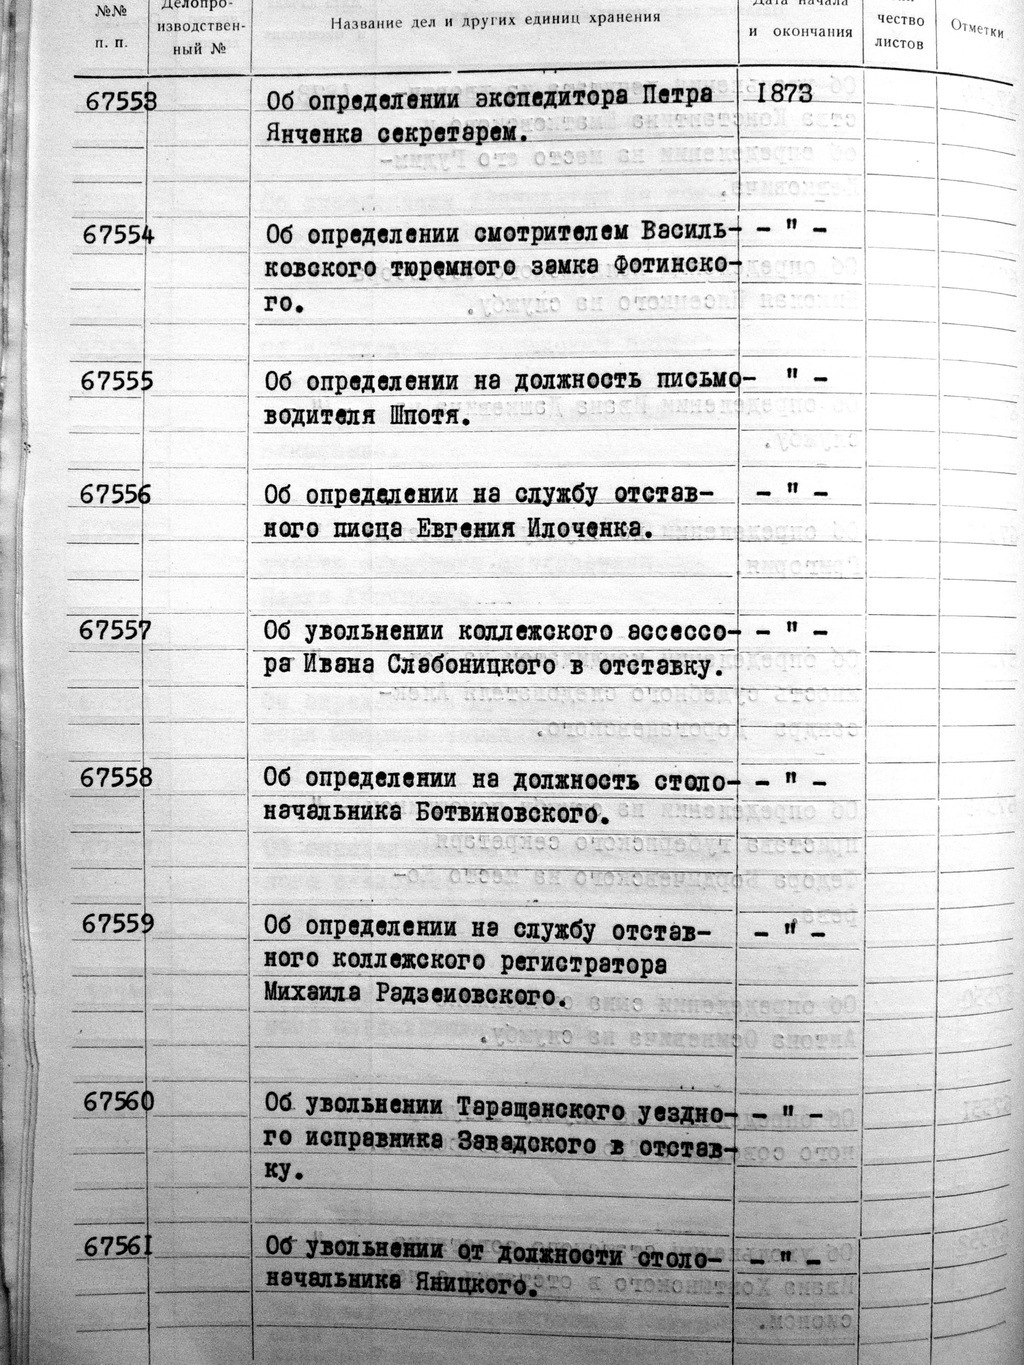 №№ Делопро- Название дел и других единиц хранения Дата начала чество Отметки
п. п. изводствен- и окончания листов
ный №
67553 Об определении экспедитора Петра 1873
Янченка секретарем.
67554 Об определении смотрителем Василь- - " -
ковского тюремного замка Фотинско-
го.
67555 Об определении на должность письмо- " -
водителя Шпотя.
67556 Об определении на службу отстав- - " -
ного писца Евгения Илоченка.
67557 Об увольнении коллежского ассессо- - " -
ра Ивана Слабоницкого в отставку.
67558 Об определении на должность столо- - " -
начальника Ботвиновского.
67559 Об определении на службу отстав- - " -
ного коллежского регистратора
Михаила Радзеиовского.
67560 Об увольнении Таращанского уездно- - " -
го исправника Завадского в отстав-
ку.
67561 Об увольнении от должности столо- - " -
начальника Яницкого.